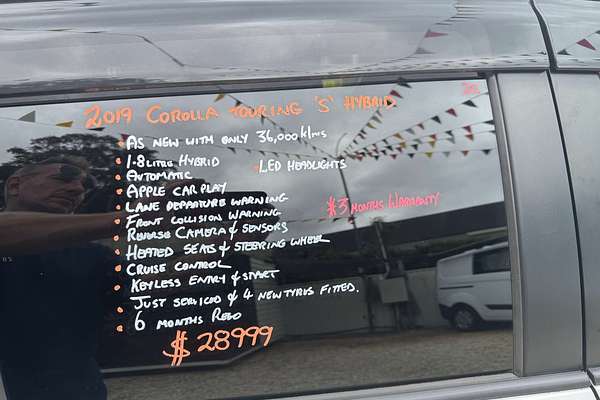 2019 COROLLA TOURING 'S' HYBRID
• AS NEW WITH ONLY 36,000 klms
• 1.8 LITRE HYBRID
• LED HEADLIGHTS
• AUTOMATIC
• APPLE CAR PLAY
• LANE DEPARTURE WARNING
• FRONT COLLISION WARNING
• REVERSE CAMERA & SENSORS
• HEATED SEATS & STEERING WHEEL
• CRUISE CONTROL
• KEYLESS ENTRY & START
• JUST SERVICED & 4 NEW TYRES FITTED.
• 6 MONTHS REGO
3 MONTHS WARRANTY
$28999